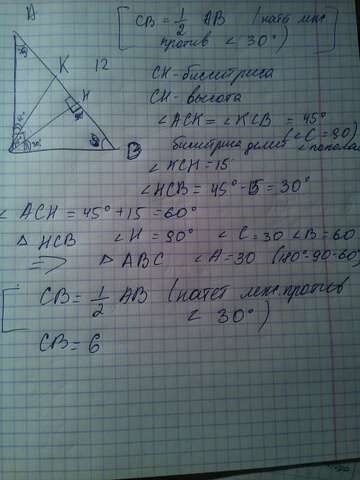 A
K
12
H
B
CB = 1/2 AB (катет леж.
против < 30°)
CK - биссектриса
CH - высота
< ACK = < KCB = 45°
(< C = 90)
биссектриса делит < пополам
< KCH = 15
< HCB = 45° - 15 = 30°
< ACH = 45° + 15 = 60°
Δ HCB < H = 90° < C = 30 < B = 60
=> Δ ABC < A = 30 (180°-90-60)
CB = 1/2 AB (катет леж. против
< 30°)
CB = 6